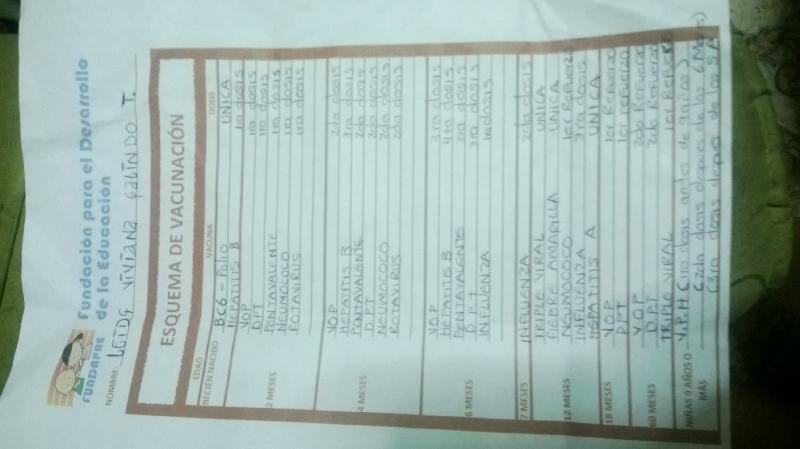 FUNDAPRE
Fundación para el Desarrollo
de la Educación
NOMBRE: LEIDY VIVIANA GALINDO T.
ESQUEMA DE VACUNACIÓN
EDAD VACUNA DOSIS
RECIEN NACIDO BCG - Polio UNICA
HEPATITIS B 1ra dosis
2 MESES VOP 1ra dosis
DPT 1ra dosis
PENTAVALENTE 1ra dosis
NEUMOCOCO 1ra dosis
ROTAVIRUS 1ra dosis
4 MESES VOP 2da dosis
HEPATITIS B 3ra dosis
PENTAVALENTE 2da dosis
DPT 2da dosis
NEUMOCOCO 2da dosis
ROTAVIRUS 2da dosis
6 MESES VOP 3ra dosis
HEPATITIS B 4ta dosis
PENTAVALENTE 3ra dosis
D.P.T 3ra dosis
INFLUENZA 1r dosis
7 MESES INFLUENZA 2da dosis
12 MESES TRIPLE VIRAL UNICA
FIEBRE AMARILLA UNICA
NEUMOCOCO 1er Refuerzo
INFLUENZA 3ra dosis
HEPATITIS A UNICA
18 MESES VOP 1er Refuerzo
DPT 1er refuerzo
60 MESES VOP 2do Refuerzo
DPT 2do Refuerzo
TRIPLE VIRAL 1er Refuerzo
NIÑAS 9 AÑOS O V.P.H (1ra dosis antes de 9 años)
MAS (2da dosis depues de los 6 Meses)
(3ra dosis depues de los